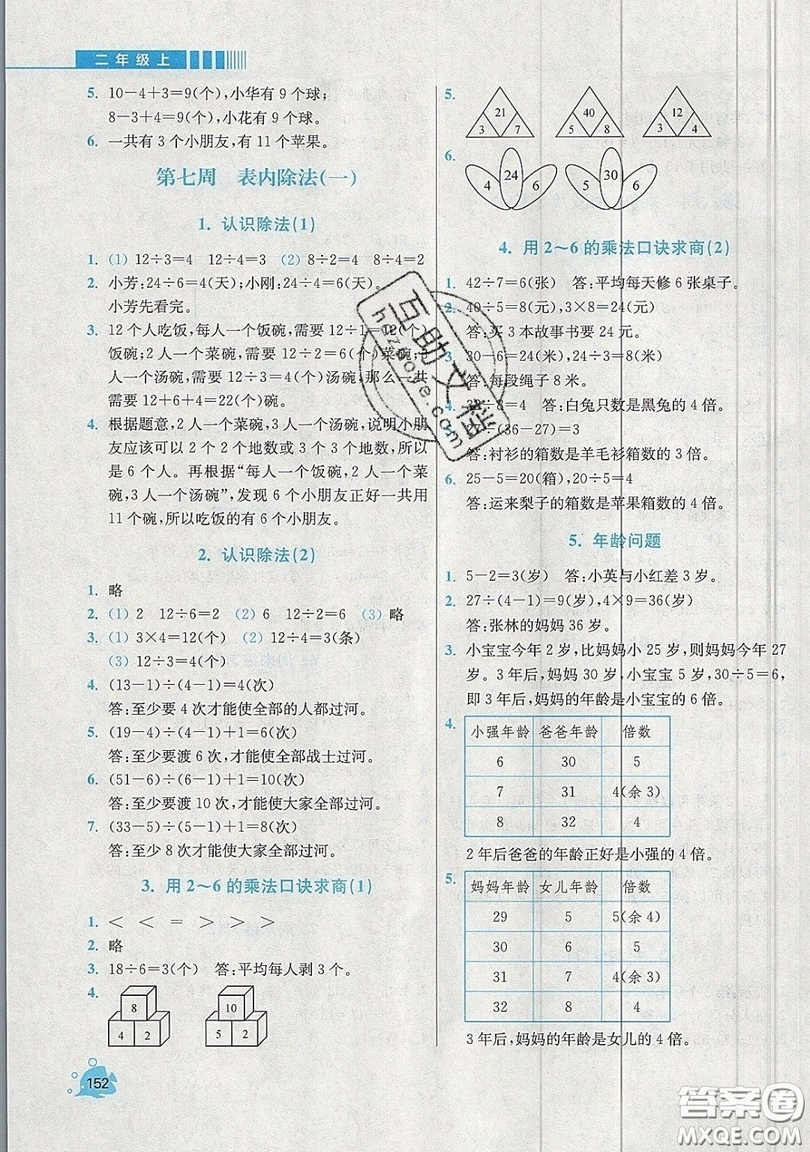 二年级上
5. 10-4+3=9(个),小华有 9 个球;
8-3+4=9(个),小花有 9 个球。
6. 一共有 3 个小朋友,有 11 个苹果。
第七周 表内除法(一)
1. 认识除法(1)
1. (1) 12÷3=4 12÷4=3 (2) 8÷2=4 8÷4=2
2. 小芳:24÷6=4(天);小刚:24÷4=6(天)。
小芳先看完。
3. 12 个人吃饭,每人一个饭碗,需要 12÷1=12(个)
饭碗;2 人一个菜碗,需要 12÷2=6(个)菜碗;3
人一个汤碗,需要 12÷3=4(个)汤碗,那么一共
需要 12+6+4=22(个)碗。
4. 根据题意,2 人一个菜碗,3 人一个汤碗,说明小朋
友应该可以 2 个 2 个地数或 3 个 3 个地数,所以
是 6 个人。再根据“每人一个饭碗,2 人一个菜
碗,3 人一个汤碗”,发现 6 个小朋友正好一共用
11 个碗,所以吃饭的有 6 个小朋友。
2. 认识除法(2)
1. 略
2. (1) 2 12÷6=2 (2) 6 12÷2=6 (3) 略
3. (1) 3×4=12(个) (2) 12÷4=3(条)
(3) 12÷3=4(个)
4. (13-1)÷(4-1)=4(次)
答:至少要 4 次才能使全部的人都过河。
5. (19-4)÷(4-1)+1=6(次)
答:至少要渡 6 次,才能使全部战士过河。
6. (51-6)÷(6-1)+1=10(次)
答:至少要渡 10 次,才能使大家全部过河。
7. (33-5)÷(5-1)+1=8(次)
答:至少 8 次才能使大家全部过河。
3. 用 2～6 的乘法口诀求商(1)
1. < < = > > >
2. 略
3. 18÷6=3(个) 答:平均每人剥 3 个。
4.
8 10
4 2 5 2
152
5.
21 40 12
3 7 5 8 3 4
6.
4 24 6 5 30 6
4. 用 2～6 的乘法口诀求商(2)
1. 42÷7=6(张) 答:平均每天修 6 张桌子。
2. 40÷5=8(元),3×8=24(元)
答:买 3 本故事书要 24 元。
3. 30-6=24(米),24÷3=8(米)
答:每段绳子 8 米。
4. ÷8=4 答:白兔只数是黑兔的 4 倍。
÷(36-27)=3
答:衬衫的箱数是羊毛衫箱数的 3 倍。
6. 25-5=20(箱),20÷5=4
答:运来梨子的箱数是苹果箱数的 4 倍。
5. 年龄问题
1. 5-2=3(岁) 答:小英与小红差 3 岁。
2. 27÷(4-1)=9(岁),4×9=36(岁)
答:张林的妈妈 36 岁。
3. 小宝宝今年 2 岁,比妈妈小 25 岁,则妈妈今年 27
岁。3 年后,妈妈 30 岁,小宝宝 5 岁,30÷5=6,
即 3 年后,妈妈的年龄是小宝宝的 6 倍。
4.
小强年龄 爸爸年龄 倍数
6 30 5
7 31 4(余 3)
8 32 4
2 年后爸爸的年龄正好是小强的 4 倍。
5.
妈妈年龄 女儿年龄 倍数
29 5 5(余 4)
30 6 5
31 7 4(余 3)
32 8 4
3 年后,妈妈的年龄是女儿的 4 倍。
互助文档
hdzuoye.com
答案圈
MXQE.COM